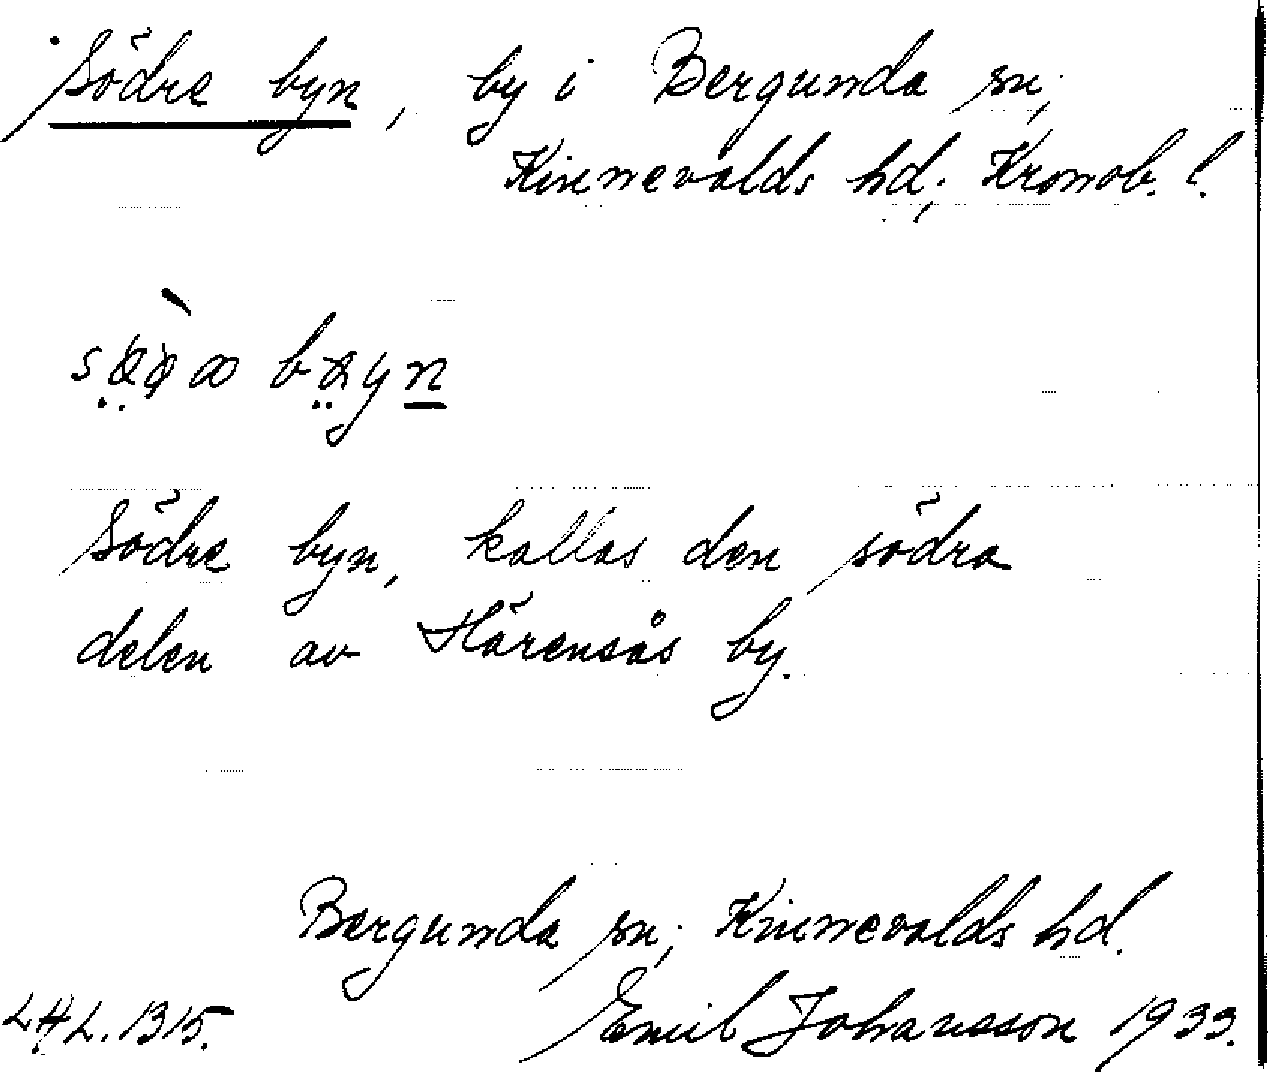 Södre byn, by i Bergunda sn;
Kinnevalds hd; Kronob. l.
Södre byn, kallas den södra
delen av Härensås by.
Bergunda sn; Kinnevalds hd.
Emil Johansson 1933.